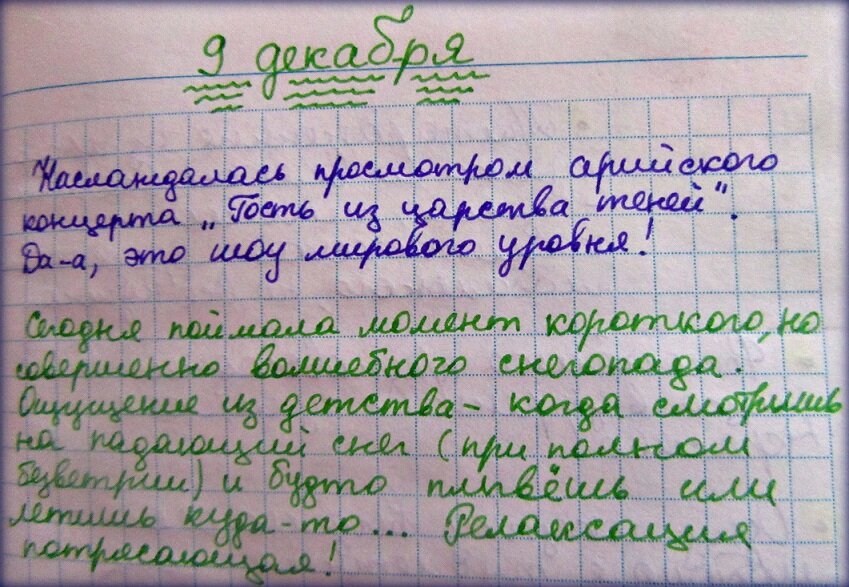 9 декабря
Наслаждалась просмотром арийского
концерта „Гость из царства теней".
Да-а, это шоу мирового уровня!
Сегодня поймала момент короткого, но
совершенно волшебного снегопада.
Ощущение из детства - когда смотришь
на падающий снег (при полном
безветрии) и будто плывёшь или
летишь куда-то... Релаксация
потрясающая!